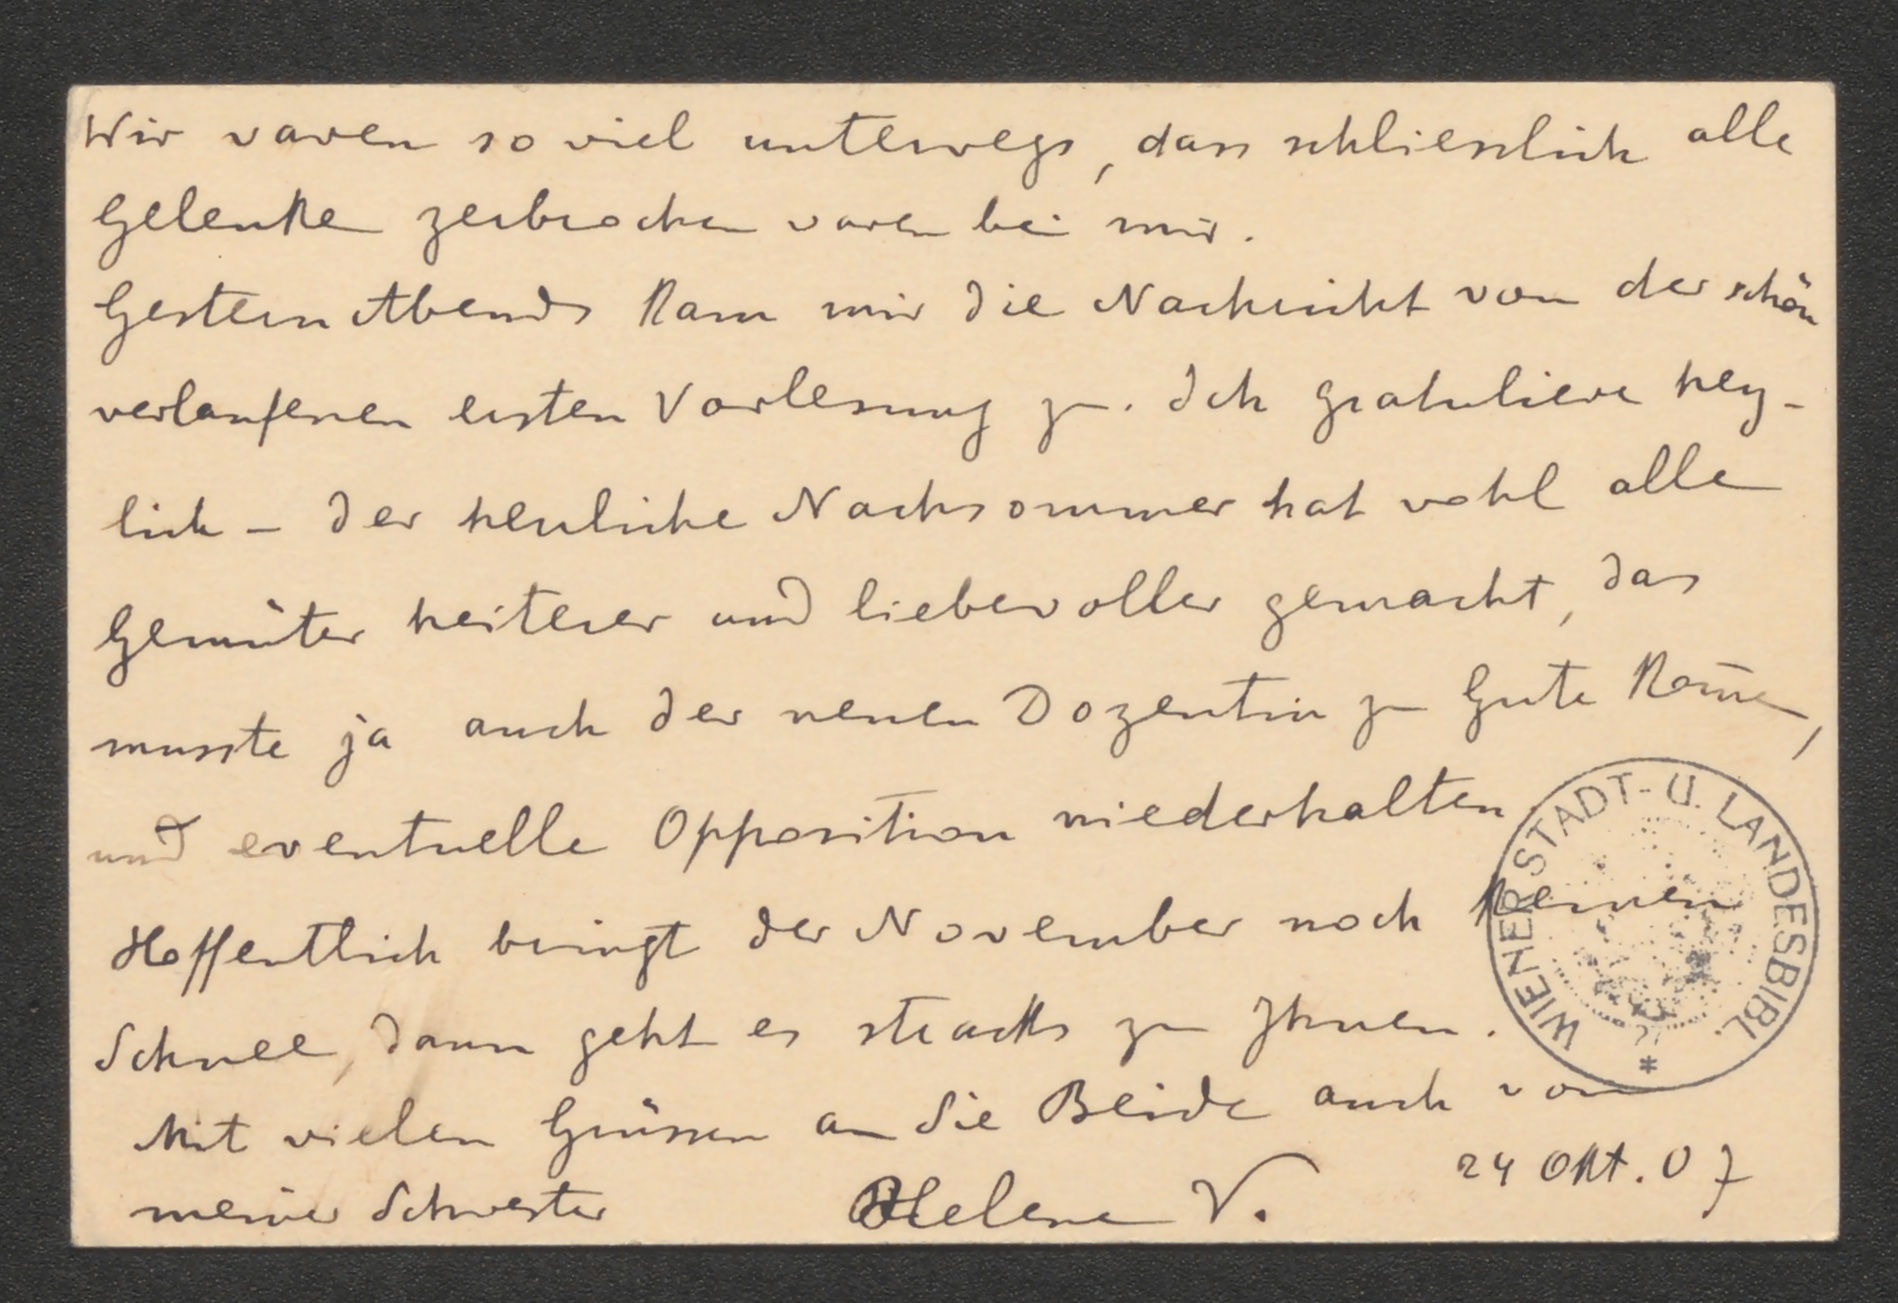 Wir waren so viel unterwegs, dass schliesslich alle
Gelenke zerbrochen waren bei mir.
Gestern Abends kam mir die Nachricht von der schön
verlaufenen ersten Vorlesung zu. Ich gratuliere herz-
lich – der herrliche Nachsommer hat wohl alle
Gemüter heiterer und liebevoller gemacht, das
musste ja auch der neuen Dozentin zu Gute kom̄en,
und eventuelle Opposition niederhalten.
Hoffentlich bringt der November noch keinen
Schnee, dann geht es stracks zu Ihnen.
Mit vielen Grüssen an Sie Beide auch von
meiner Schwester Helene V. 24 Okt. 07
WIENER STADT- U. LANDESBIBL. *